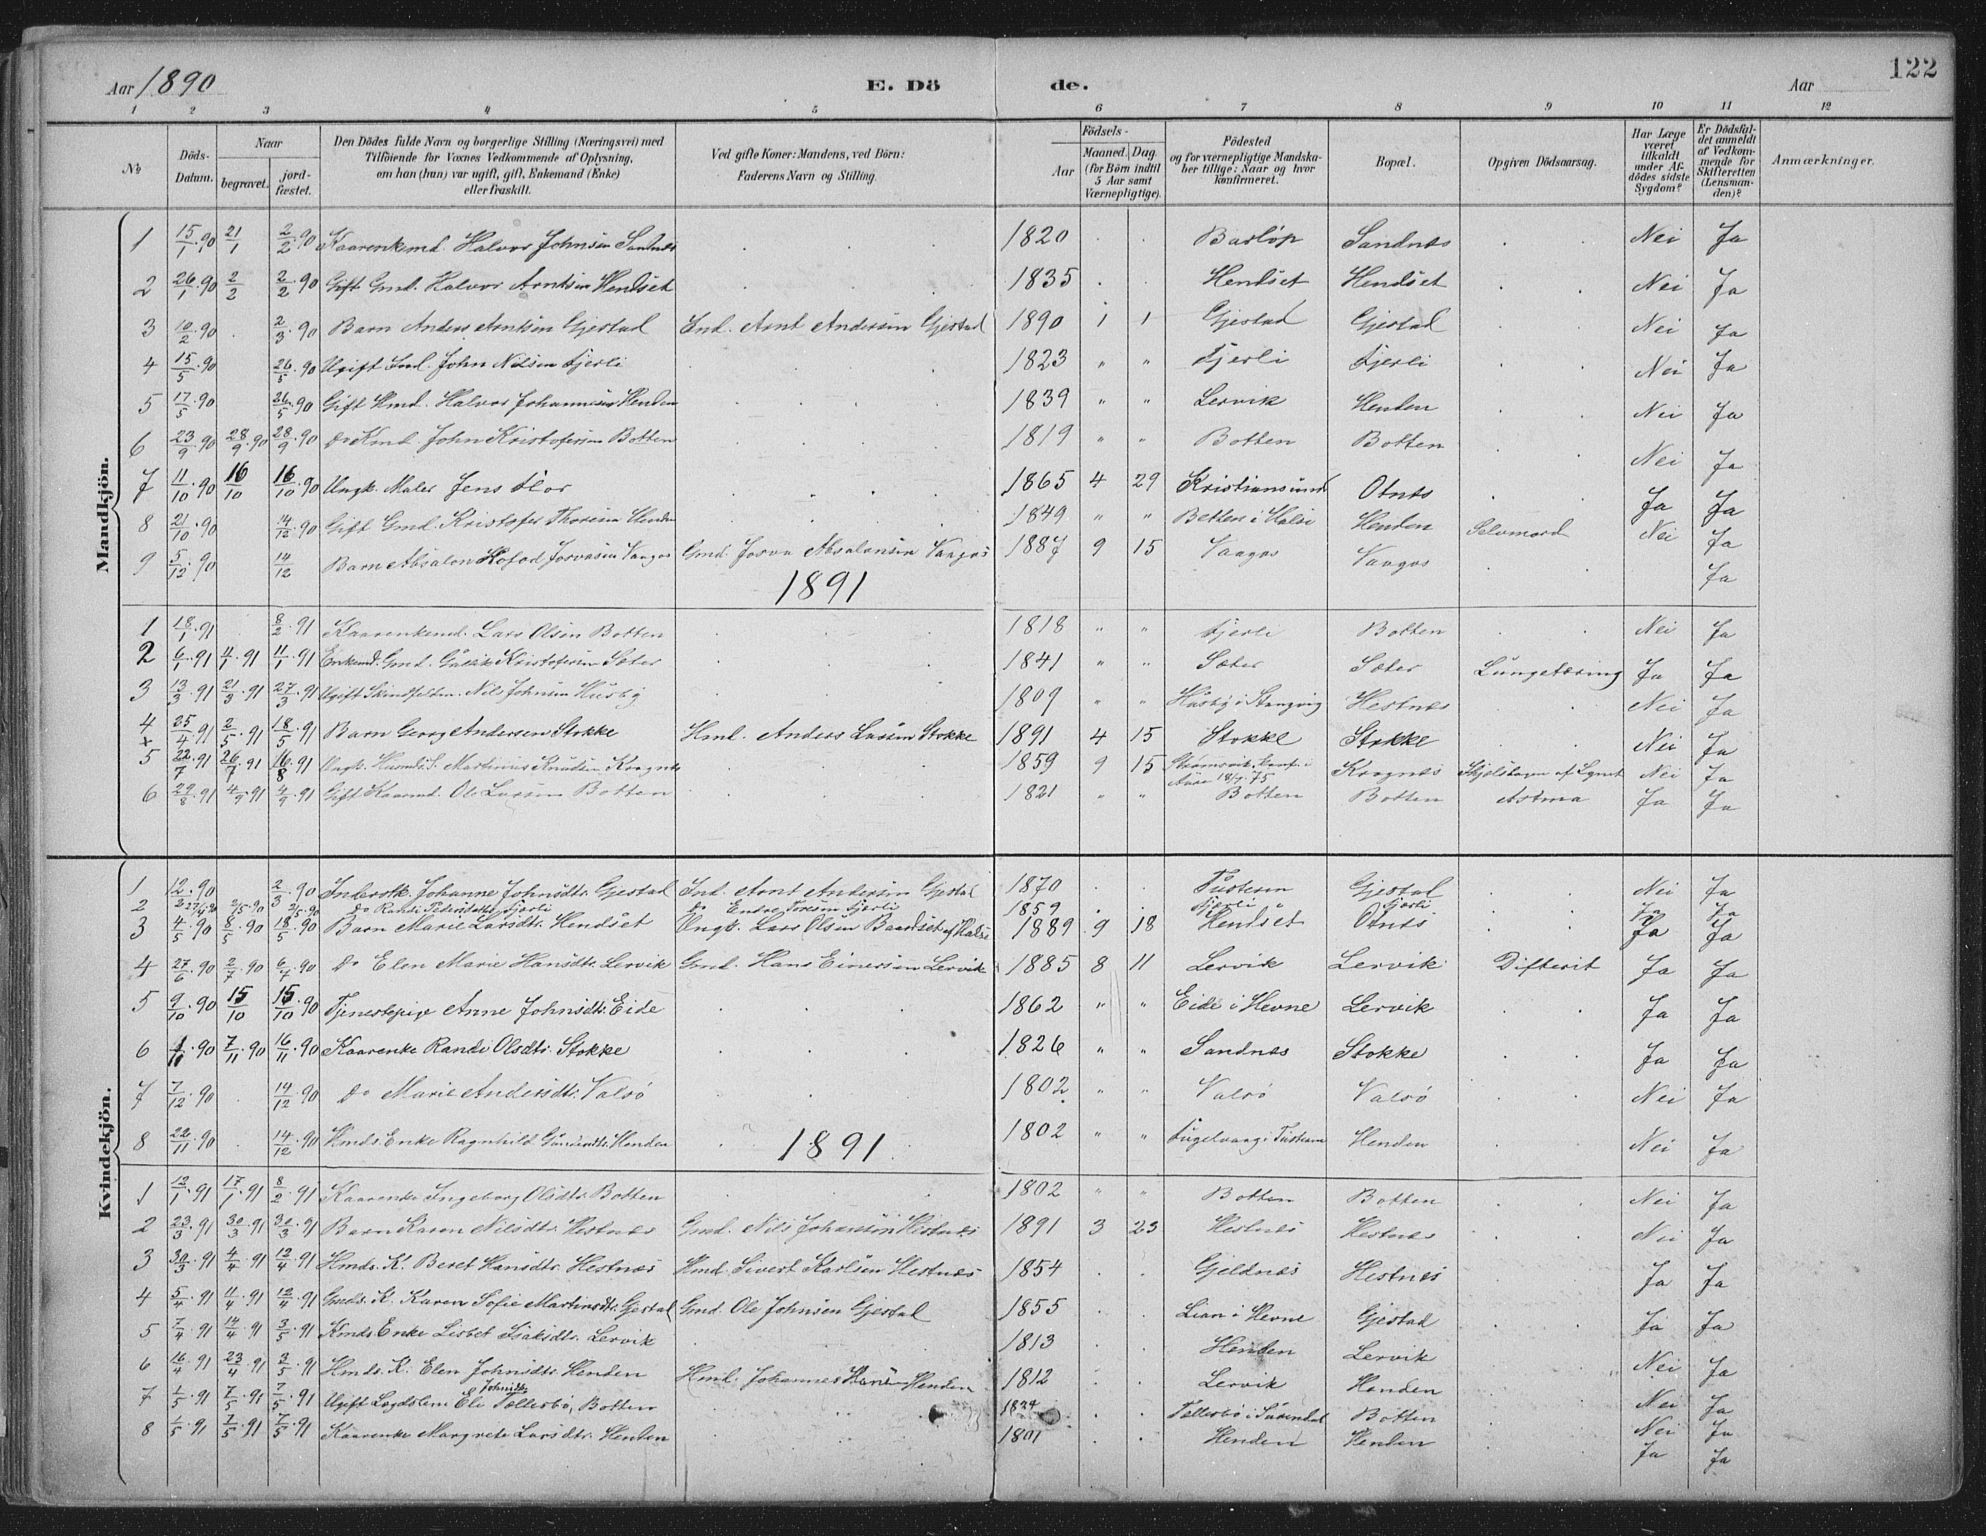 122
Aar 1890 E. Dö de. Aar
1 2 3 4 5 6 7 8 9 10 11 12
No Döds-Datum. Naar begravet. jordfæstet. Den Dödes fulde Navn og borgerlige Stilling (Næringsvei) med Tilföiende for Voxnes Vedkommende af Oplysning, om han (hun) var ugift, gift, Enkemand (Enke) eller fraskilt. Ved gifte Koner: Mandens, ved Börn: Faderens Navn og Stilling. Födsels- Aar Maaned. Dag. (for Börn indtil 5 Aar samt Værnepligtige). Födested og for værnepligtige Mandskaber tillige: Naar og hvor konfirmeret. Bopæl. Opgiven Dödsaarsag. Har Læge været tilkaldt under Afdödes sidste Sygdom? Er Dödsfaldet anmeldt af Vedkommende for Skifteretten (Lensmanden)? Anmærkninger.
Mandkjön.
1 15/1.90 21/1 2/2.90 Kaarenkemd. Halvor Johnsen Sandnes 1820 Sandnes Nei Ja
2 26/1.90 2/2 2/2.90 Gift Gmd. Halvor Arntsen Hendset 1835 Hendset Hendset Nei Ja
3 10/2.90 2/3.90 Barn Anders Arntsen Gjestad Ind. Arnt Andersen Gjestad 1890 1 1 Gjestad Gjestad Nei Ja
4 15/5.90 26/5.90 Ugift Ind. John Nilsen Fjerli 1823 " " Fjerli Fjerli Nei Ja
5 17/5.90 26/5.90 Gift Hmd. Halvor Johannesen Henden 1839 " " Lervik Henden Nei Ja
6 23/9.90 28/9.90 28/9.90 Do Kmd. John Kristofersen Botten 1819 " " Botten Botten Nei Ja
7 11/10.90 16/10 16/10.90 Ungk. Maler Jens Flor 1865 4 29 Kristiansund Otnes Ja Ja
8 21/10.90 14/12.90 Gift Gmd. Kristofer Thoresen Henden 1849 " " Betten i Halse Henden Selvmord Nei Ja
9 5/12.90 14/12 Barn Absalon Hofod Josvasen Vaagos Gmd. Josva Absalonsen Vaagos 1887 9 15 Vaagos Vaagos Ja
1891
1 18/1.91 8/2.91 Kaarenkemd. Lars Olsen Botten 1818 " " Fjerli Botten Nei Ja
2 6/1.91 11/1.91 11/1.91 Enkemd. Gmd. Gullik Kristofersen Sæter 1841 " " Sæter Sæter Lungetæring Ja Ja
3 13/3.91 21/3.91 27/3.91 Ugift Nils Johnsen Husby 1809 " " Husby i Stangvig Hestnes Nei Ja
4 x 25/4.91 2/5.91 18/5.91 Barn Georg Andersen Stokke Hmd. Anders Larsen Stokke 1891 4 15 Stokke Stokke Nei Ja
5 22/7.91 26/7.91 16/8.91 Ungk. Husmds.S. Martinus Knudsen Kragnes 1859 9 15 Strömsvik, konf. i Aure 18/7 75 Kragnes Ihjelslagen af Lynet Nei Ja
6 29/8.91 4/9.91 4/9.91 Gift Kaarmd. Ole Larsen Botten 1821 " " Botten Botten Astma Ja Ja
Kvindekjön.
1 12/2.90 2/3.90 Johanne Johnsdtr. Gjestad Ind. Arnt Andersen Gjestad 1870 Tustern Gjestad Nei Ja
2 27/4.90 2/5.90 2/5.90 Do Randi Pedersdatter Fjerli Do Endre Toresen Fjerli 1859 Fjerli Fjerli Ja Ja
3 4/5.90 8/5.90 18/5.90 Barn Marie Larsdtr. Hendset Ungk. Lars Olsen Baardset af Halse 1889 9 18 Hendset Otnes Ja Ja
4 27/6.90 2/7.90 6/7.90 Do Elen Marie Hansdtr. Lervik Gmd. Hans Einersen Lervik 1885 8 11 Lervik Lervik Difterit Ja Ja
5 9/10.90 15/10 15/10.90 Tjenestepige Anne Johnsdtr. Eide 1862 " " Eide i Hevne Lervik Ja Ja
6 1/11.90 7/11.90 16/11.90 Kaarenke Randi Olsdtr. Stokke 1826 " " Sandnes Stokke Ja Ja
7 7/12.90 14/12.90 Do Marie Andersdtr. Valsö 1802 " " Valsö Valsö Nei Ja
8 22/11.90 14/12.90 Hmds. Enke Ragnhild Gundersdtr. Henden 1802 " " Fugelvaag i Tustern Henden Nei Ja
1891
1 12/1.91 17/1.91 8/2.91 Kaarenke Ingeborg Olsdtr. Botten 1802 " " Botten Botten Nei Ja
2 23/3.91 30/3.91 30/3.91 Barn Karen Nilsdtr. Hestnes Gmd. Nils Johansen Hestnes 1891 3 23 Hestnes Hestnes Nei Ja
3 30/3.91 4/4.91 12/4.91 Hmds. K. Beret Hansdtr. Hestnes Hmd. Sivert Karlsen Hestnes 1854 Gjeldnes Hestnes Ja Ja
4 5/4.91 11/4.91 12/4.91 Gmds. K. Karen Sofie Martinsdtr. Gjestad Gmd. Ole Johnsen Gjestad 1855 Lian i Hevne Gjestad Ja Ja
5 7/4.91 14/4.91 3/5.91 Kmds Enke Lisbet Isaksdtr. Lervik 1813 Henden Lervik Nei Ja
6 16/4.91 23/4.91 3/5.91 Hmds. K. Elen Johnsdtr. Henden Hmd. Johannes Henden 1812 Lervik Henden Nei Ja
7 1/5.91 7/5.91 7/5.91 Ugift Lægdslem Eli Johnsdtr. Tellesbö, Botten 1824 Tellesbö i Surendal Botten Nei Ja
8 1/5.91 7/5.91 7/5.91 Kaarenke Margrete Larsdtr. Henden 1801 Henden Henden Ja Ja